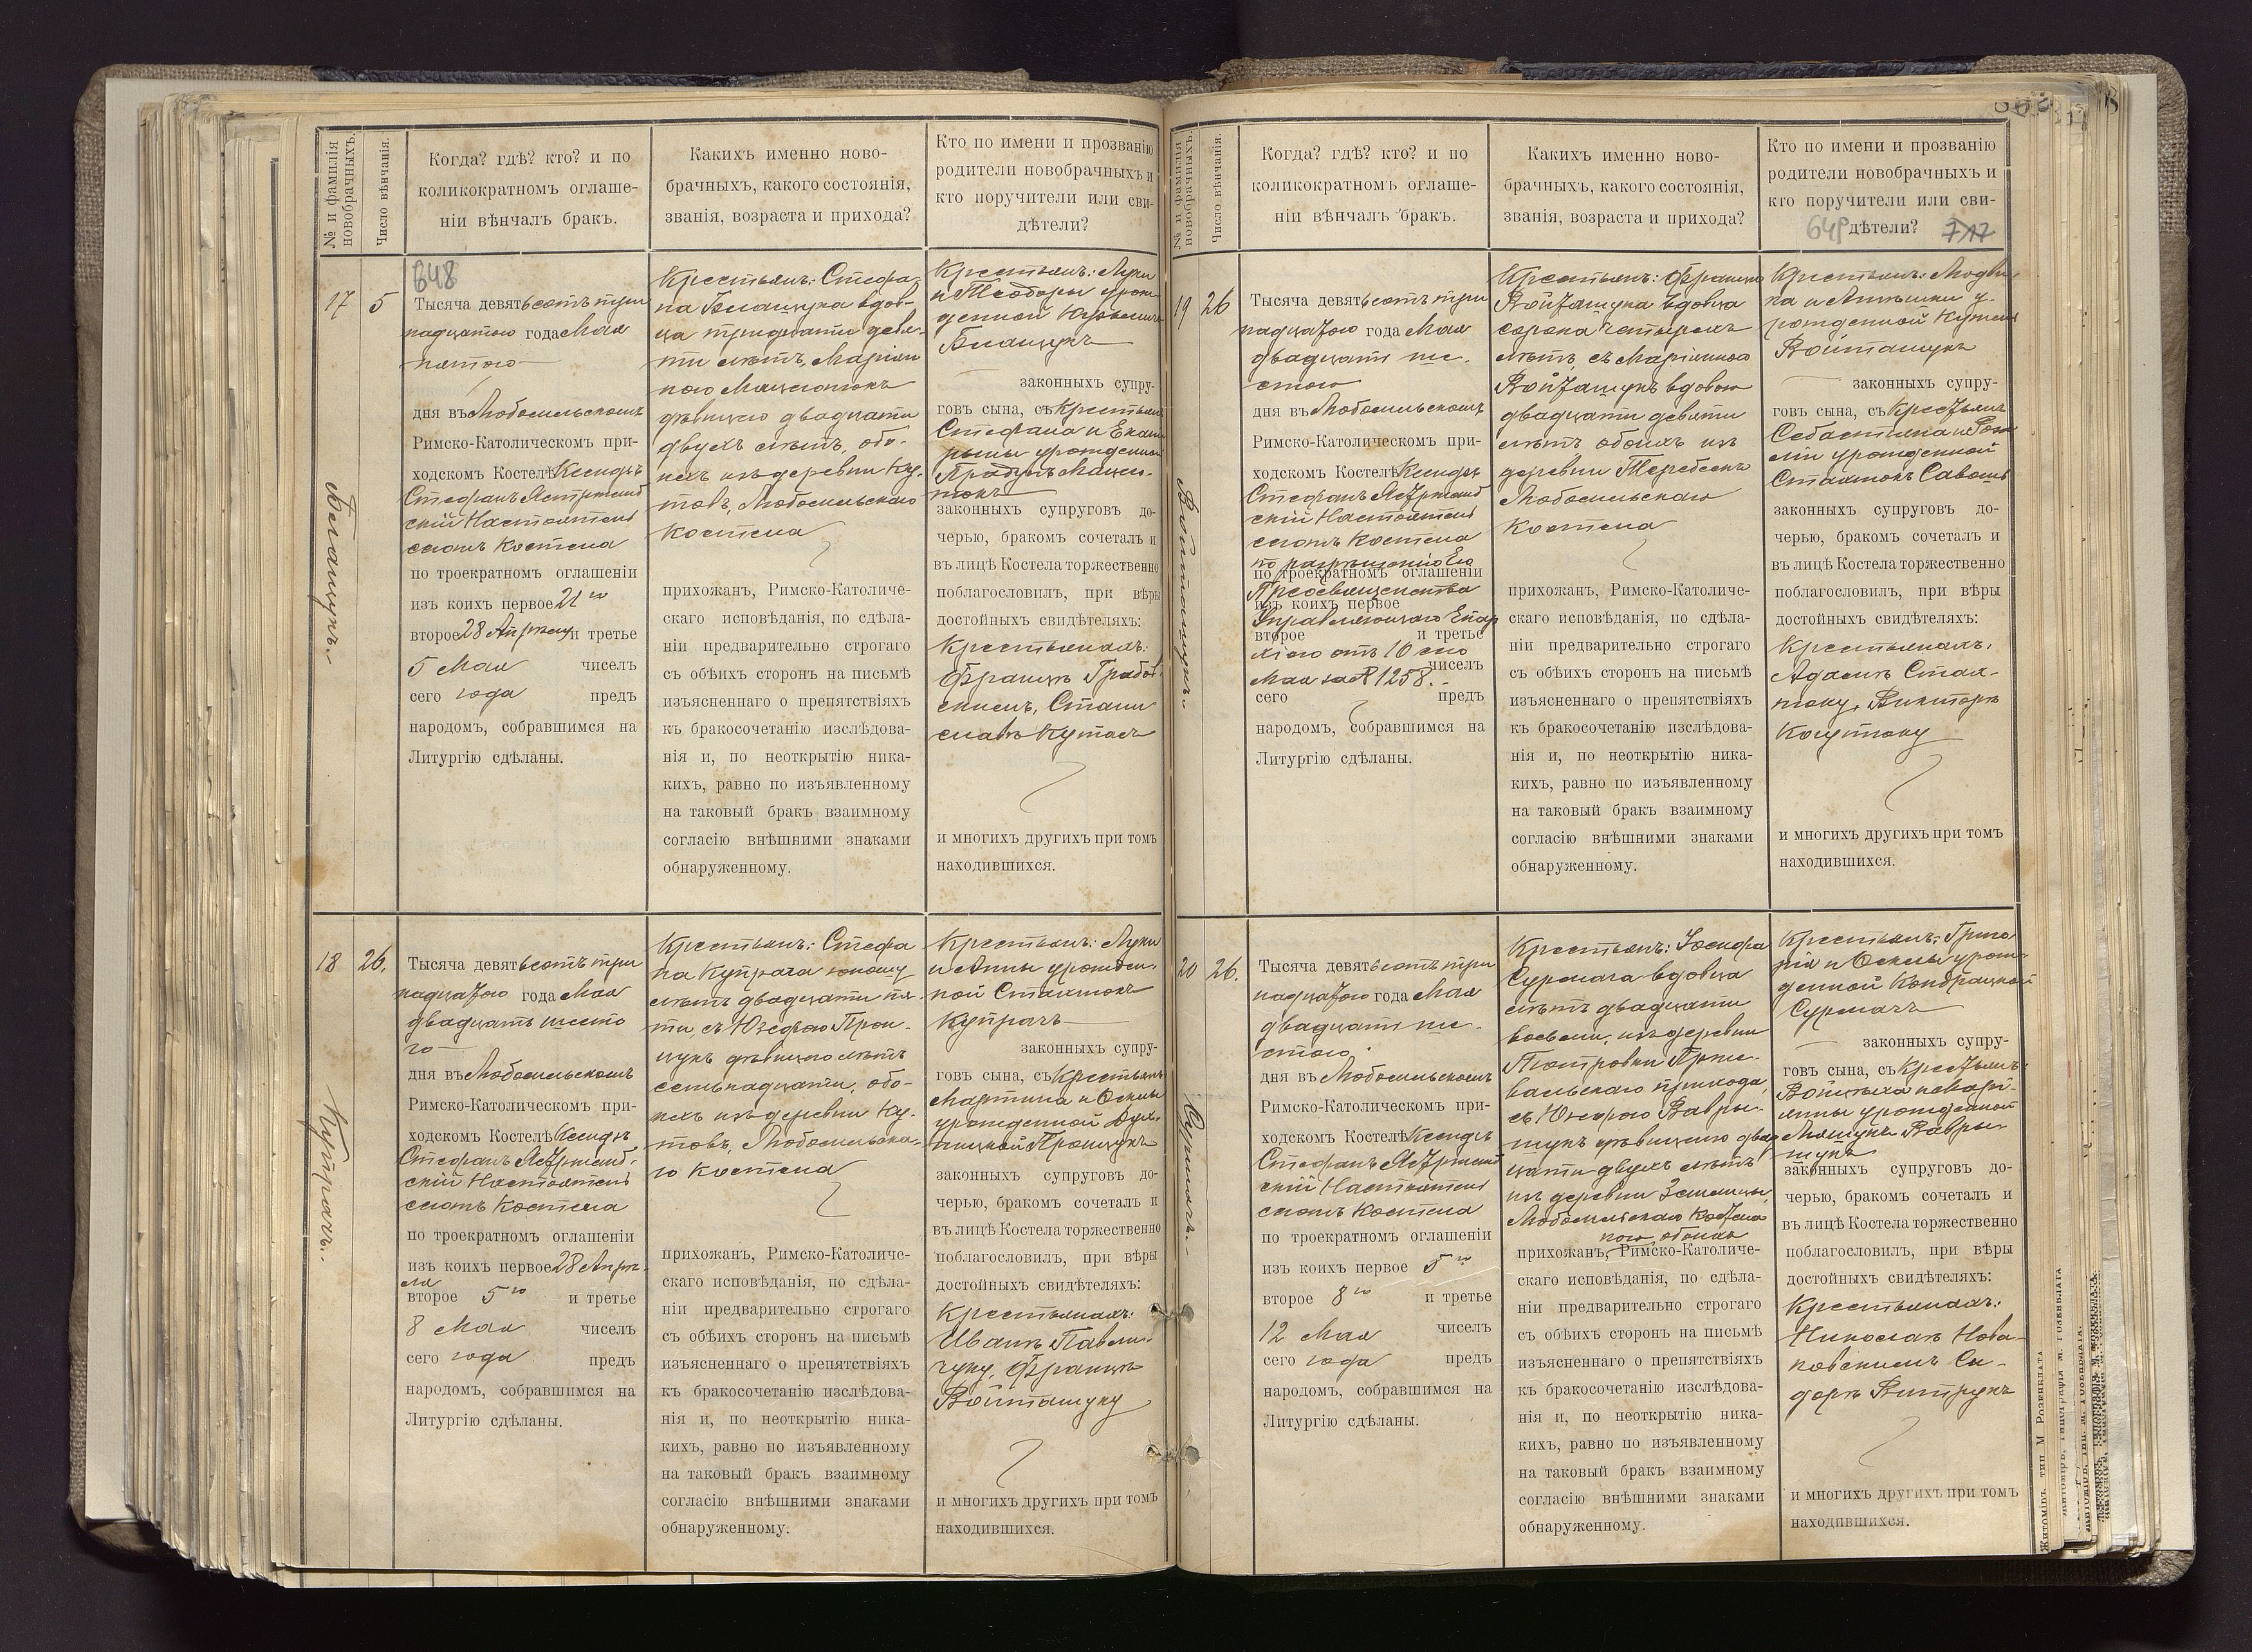 № и фамилія новобрачныхъ.
Число вѣнчанія.
Когда? гдѣ? кто? и по
коликократномъ оглаше-
ніи вѣнчалъ бракъ.
Какихъ именно ново-
брачныхъ, какого состоянія,
званія, возраста и прихода?
Кто по имени и прозванію
родители новобрачныхъ и
кто поручители или сви-
дѣтели?
648
17
5
Тысяча девятьсотъ три
надцатого года Мая
пятого
дня въ Любомльскомъ
Римско-Католическомъ при-
ходскомъ Костелѣ Ксендзъ
Стефанъ Ястржемб
скій Настоятель
сего Костела
по троекратномъ оглашеніи
изъ коихъ первое 21го
второе 28 Апрѣля и третье
5 Мая чиселъ
сего года предъ
народомъ, собравшимся на
Литургію сдѣланы.
Крестьянъ: Стефа-
на вдов-
ца тридцати девя-
ти лѣтъ, съ Маріан
ною
дѣвицею двадцати
двухъ лѣтъ, обо-
ихъ изъ деревни Ку-
товъ, Любомльскаго
Костела
прихожанъ, Римско-Католиче-
скаго исповѣданія, по сдѣла-
ніи предварительно строгаго
съ обѣихъ сторонъ на письмѣ
изъясненнаго о препятствіяхъ
къ бракосочетанію изслѣдова-
нія и, по неоткрытію ника-
кихъ, равно по изъявленному
на таковый бракъ взаимному
согласію внѣшними знаками
обнаруженному.
Крестьянъ: Луки
и Теодоры урож-
денной
законныхъ супру-
говъ сына, съ Крестьянъ
Стефана и Екате
рины урожденной
законныхъ супруговъ до-
черью, бракомъ сочеталъ и
въ лицѣ Костела торжественно
поблагословилъ, при вѣры
достойныхъ свидѣтеляхъ:
Крестьянахъ:
Францъ Грабов
скимъ, Стани
славъ
и многихъ другихъ при томъ
находившихся.
18
26.
Купрачъ.
Тысяча девятьсотъ три
надцатого года Мая
двадцать шесто
го
дня въ Любомльскомъ
Римско-Католическомъ при-
ходскомъ Костелѣ Ксендзъ
Стефанъ Ястржемб-
скій Настоятель
сего Костела
по троекратномъ оглашеніи
изъ коихъ первое 28 Апрѣ-
ля
второе 5го и третье
8 Мая чиселъ
сего года предъ
народомъ, собравшимся на
Литургію сдѣланы.
Крестьянъ: Стефа
на Купрача юношу
лѣтъ двадцати пя-
ти, съ Юзефою Прон-
чукъ дѣвицею лѣтъ
семьнадцати, обо-
ихъ изъ деревни Ку-
товъ, Любомльска-
го Костела
прихожанъ, Римско-Католиче-
скаго исповѣданія, по сдѣла-
ніи предварительно строгаго
съ обѣихъ сторонъ на письмѣ
изъясненнаго о препятствіяхъ
къ бракосочетанію изслѣдова-
нія и, по неоткрытію ника-
кихъ, равно по изъявленному
на таковый бракъ взаимному
согласію внѣшними знаками
обнаруженному.
Крестьянъ: Луки
и Анны урожден-
ной Стахнюкъ
Купрачъ
законныхъ супру-
говъ сына, съ Крестьянъ
Мартина и
урожденной
законныхъ супруговъ до-
черью, бракомъ сочеталъ и
въ лицѣ Костела торжественно
поблагословилъ, при вѣры
достойныхъ свидѣтеляхъ:
Крестьянахъ:
Иванъ Павли-
чуку, Францъ
Войташуку
и многихъ другихъ при томъ
находившихся.
№ и фамилія новобрачныхъ.
Число вѣнчанія.
Когда? гдѣ? кто? и по
коликократномъ оглаше-
ніи вѣнчалъ бракъ.
Какихъ именно ново-
брачныхъ, какого состоянія,
званія, возраста и прихода?
Кто по имени и прозванію
родители новобрачныхъ и
кто поручители или сви-
дѣтели?
649
717
19
26
Войташукъ.
Тысяча девятьсотъ три
надцатого года Мая
двадцать ше-
стого
дня въ Любомльскомъ
Римско-Католическомъ при-
ходскомъ Костелѣ Ксендзъ
Стефанъ Ястржемб
скій Настоятель
сего Костела
по разрѣшенію Его
по троекратномъ оглашеніи
Преосвященства
изъ коихъ первое
Управляющаго Епар
второе и третье
хіею отъ 10 сего
чиселъ
Мая за № 1258.
сего предъ
народомъ, собравшимся на
Литургію сдѣланы.
Крестьянъ: Францика
Войташука вдовца
сорока четырехъ
лѣтъ, съ Маріанною
Войташукъ вдовою
двадцати девяти
лѣтъ обоихъ изъ
деревни
Любомльскаго
Костела
прихожанъ, Римско-Католиче-
скаго исповѣданія, по сдѣла-
ніи предварительно строгаго
съ обѣихъ сторонъ на письмѣ
изъясненнаго о препятствіяхъ
къ бракосочетанію изслѣдова-
нія и, по неоткрытію ника-
кихъ, равно по изъявленному
на таковый бракъ взаимному
согласію внѣшними знаками
обнаруженному.
Крестьянъ: Людви-
ка и у-
рожденной
Войташукъ
законныхъ супру-
говъ сына, съ Крестьянъ
Себастіяна и
урожденной
Стахнюкъ
законныхъ супруговъ до-
черью, бракомъ сочеталъ и
въ лицѣ Костела торжественно
поблагословилъ, при вѣры
достойныхъ свидѣтеляхъ:
Крестьянахъ,
Адамъ Стах-
нюку, Викторъ
и многихъ другихъ при томъ
находившихся.
20
26.
Сурмачъ.
Тысяча девятьсотъ три
надцатого года Мая
двадцать ше-
стого
дня въ Любомльскомъ
Римско-Католическомъ при-
ходскомъ Костелѣ Ксендзъ
Стефанъ Ястржемб
скій Настоятель
сего Костела
по троекратномъ оглашеніи
изъ коихъ первое 5го
второе 8го и третье
12 Мая чиселъ
сего года предъ
народомъ, собравшимся на
Литургію сдѣланы.
Крестьянъ: Іосифа
Сурмача вдовца
лѣтъ двадцати
восьми, изъ деревни
прихода,
съ Юзефою Вавры-
щукъ дѣвицею двад
цати двухъ лѣтъ
изъ деревни
Любомльскаго Костела
обоихъ
прихожанъ, Римско-Католиче-
скаго исповѣданія, по сдѣла-
ніи предварительно строгаго
съ обѣихъ сторонъ на письмѣ
изъясненнаго о препятствіяхъ
къ бракосочетанію изслѣдова-
нія и, по неоткрытію ника-
кихъ, равно по изъявленному
на таковый бракъ взаимному
согласію внѣшними знаками
обнаруженному.
Крестьянъ: Григо-
рія и урож-
денной
Сурмачъ
законныхъ супру-
говъ сына, съ Крестьянъ
Войцѣха и Марі-
анны урожденной
Вавры-
щукъ
законныхъ супруговъ до-
черью, бракомъ сочеталъ и
въ лицѣ Костела торжественно
поблагословилъ, при вѣры
достойныхъ свидѣтеляхъ:
Крестьянахъ:
Николаъ Нова-
ковскимъ Си-
доръ Витрукъ
и многихъ другихъ при томъ
находившихся.
Житоміръ. тип М Розенблата